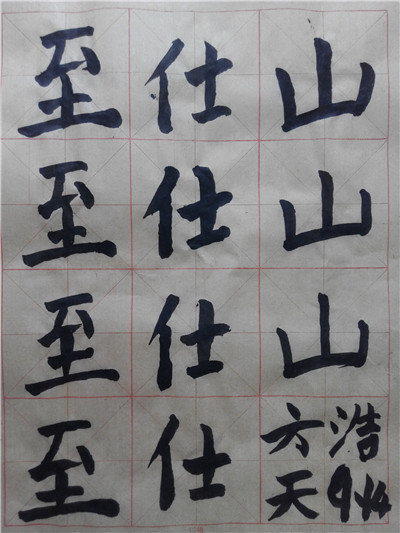 山山山
浩
六天
仕仕仕仕
至至至至